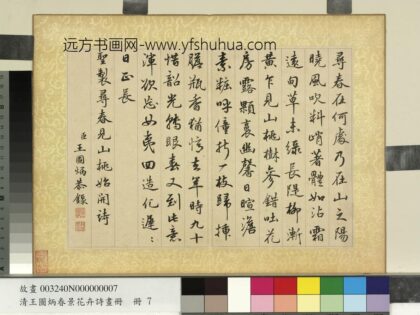 远方书画网 - www.yfshuhua.com
尋春在何處乃在山之陽
曉風吹料峭著體如沾霜
遠甸草未綠長隄柳漸
黃乍見山桃樹參錯吐花
房露顆裛幽馨日暄澹
素粧呼僮折一枝歸插
膽瓶香猶憶去年時九十
惜韶光轉眼春又到此意
渾欲忘 造化遲〻
日正長
聖製尋春見山桃始開詩
臣王圖炳恭錄
故畫 003240N000000007
清王圖炳春景花卉詩畫冊 冊 7